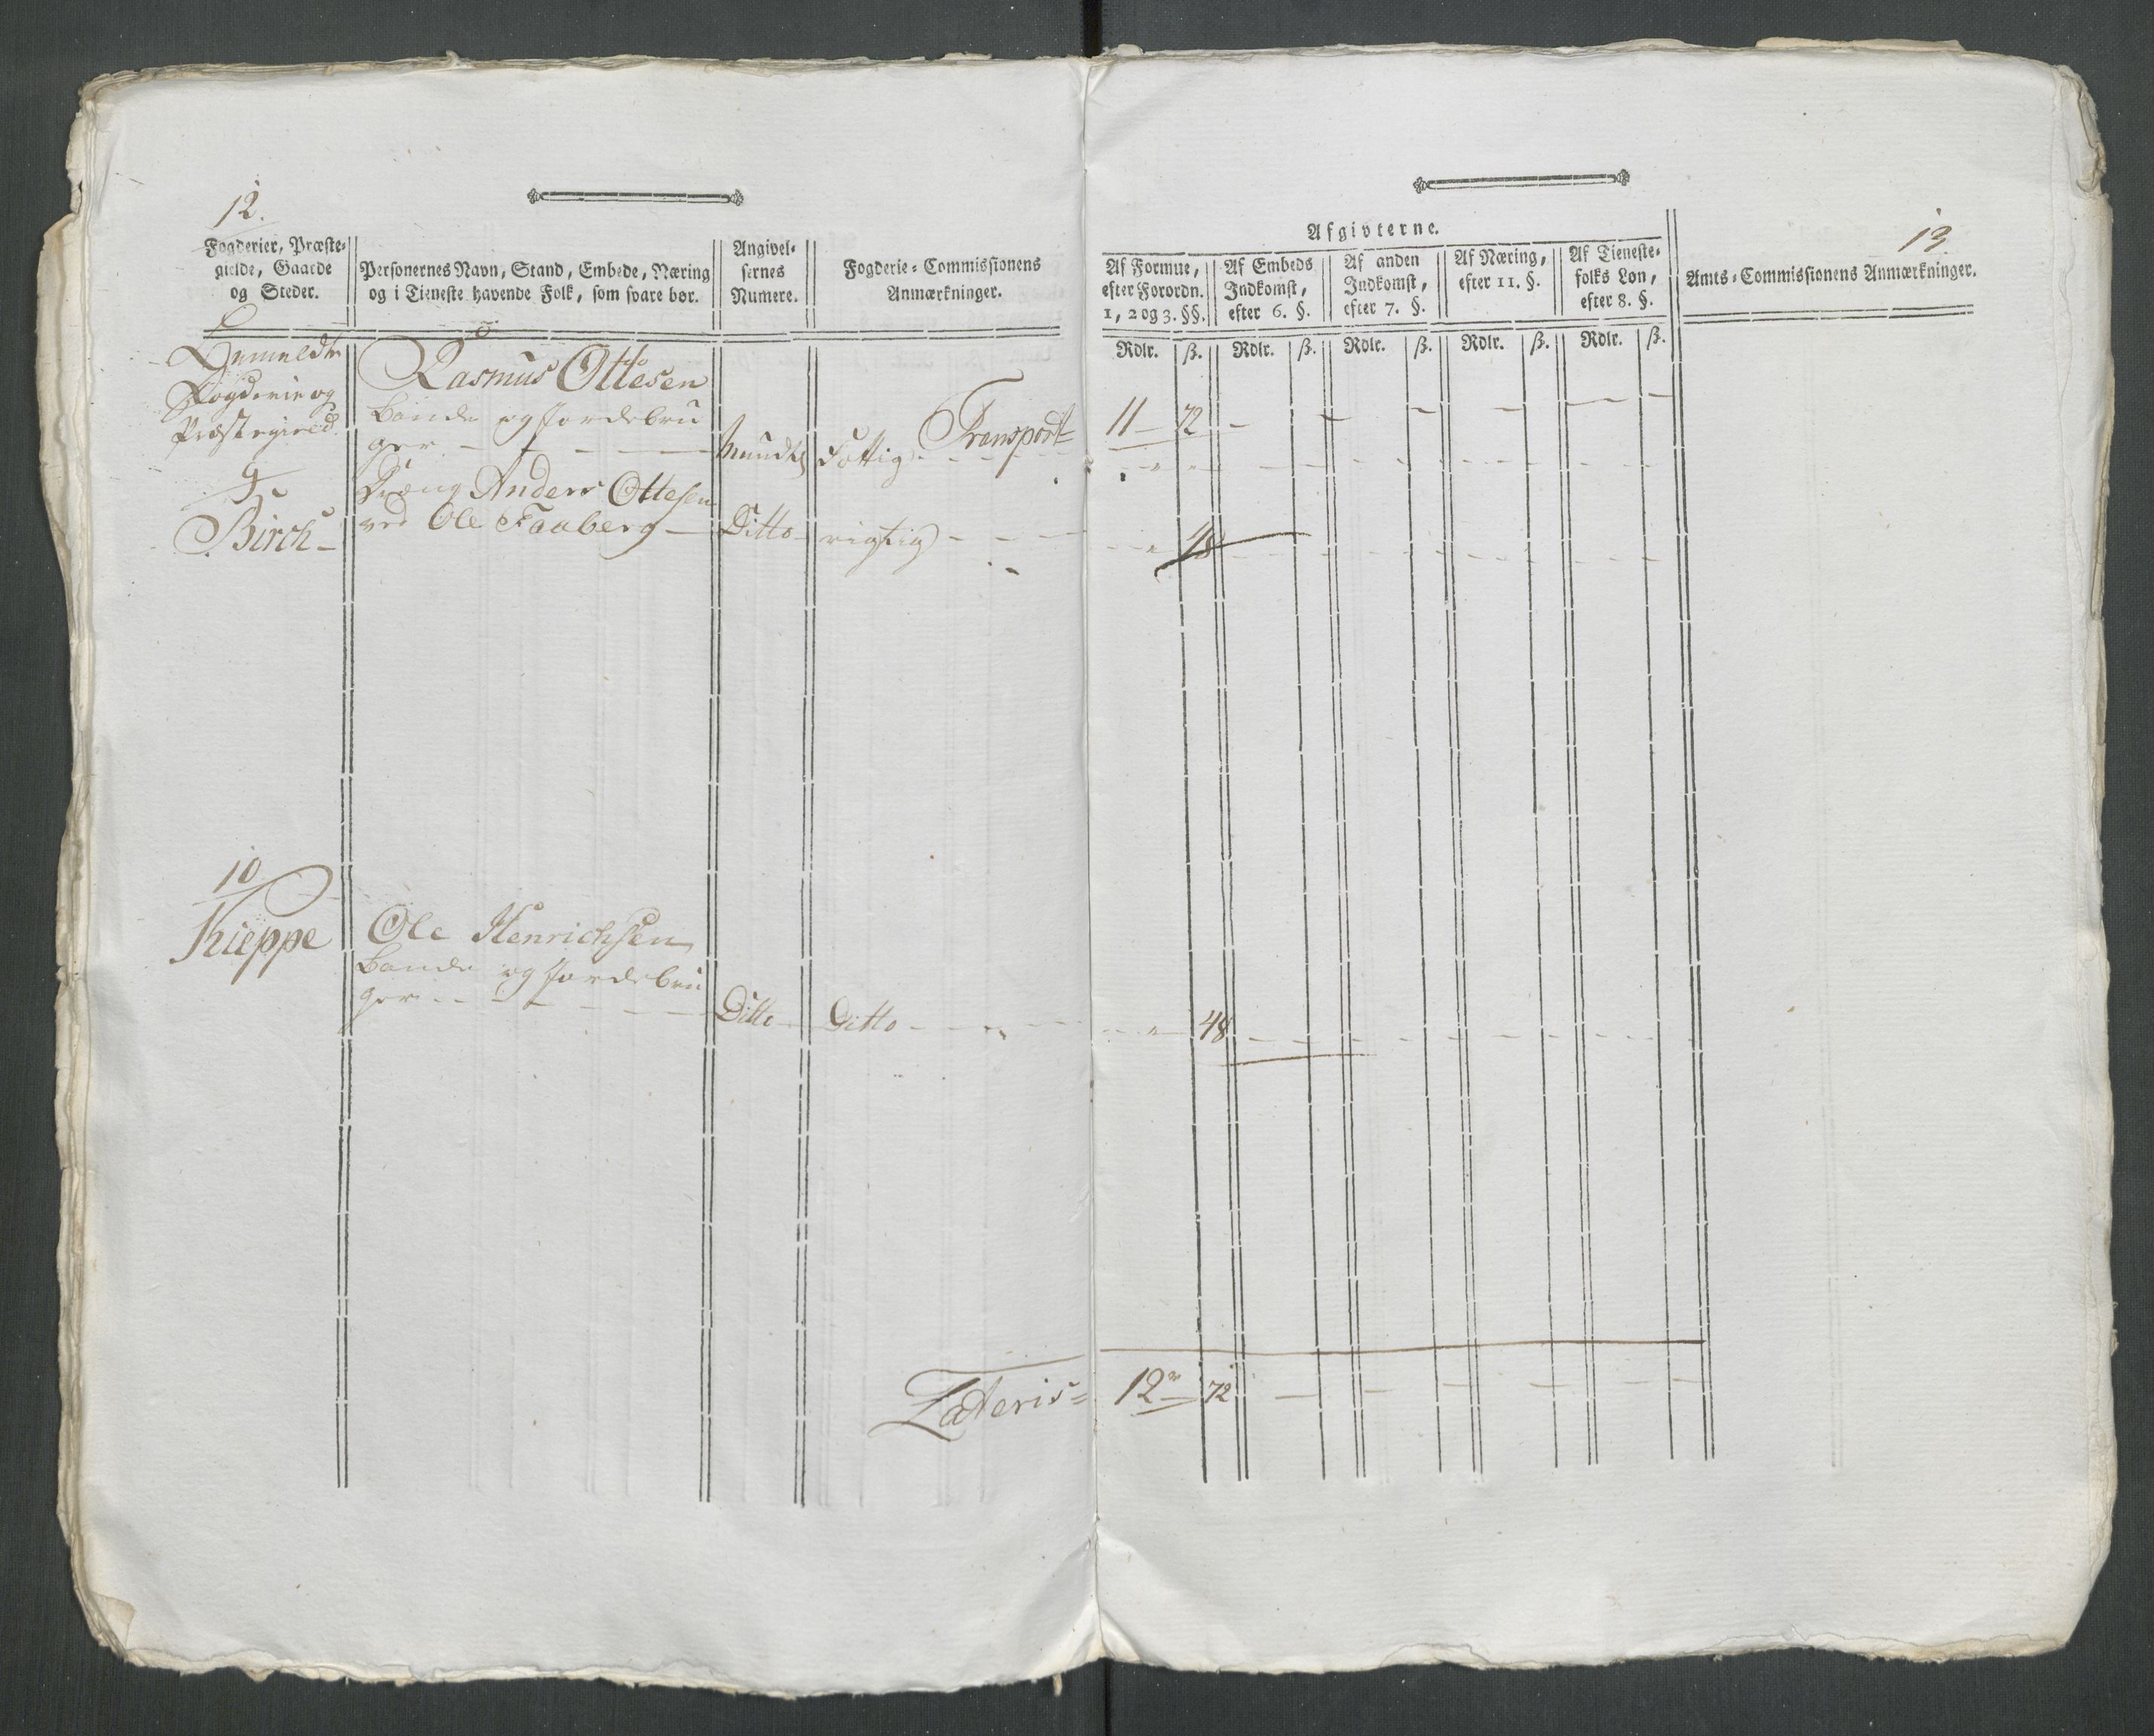 12.
Fogderier, Præste-
gielde, Gaarde
og Steder.
Personernes Navn, Stand, Embede, Næring
og i Tieneste havende Folk, som svare bør.
Angivel-
sernes
Numere.
Fogderie-Commissionens
Anmærkninger.
Bemeldte
Fogderie og
Præstegield.
9
Birch
Rasmus Ottesen
Bonde og Jordebru
ger
Mundtl
Fattig
Transport
Dreng Anders Ottesen
ved Ole Faaberg
Ditto
rigtig
10
Kieppe
Ole Henrichsen
Bonde og Jordebru
ger
Ditto
Ditto
Lateris
13
Afgivterne.
Af Formue,
efter Forordn.
1, 2 og 3. §§.
Af Embeds
Indkomst,
efter 6. §.
Af anden
Indkomst,
efter 7. §.
Af Næring,
efter 11. §.
Af Tieneste-
folks Løn,
efter 8. §.
Amts-Commissionens Anmærkninger.
Rdlr. ß. Rdlr. ß. Rdlr. ß. Rdlr. ß. Rdlr. ß.
11 72
48
48
12 72